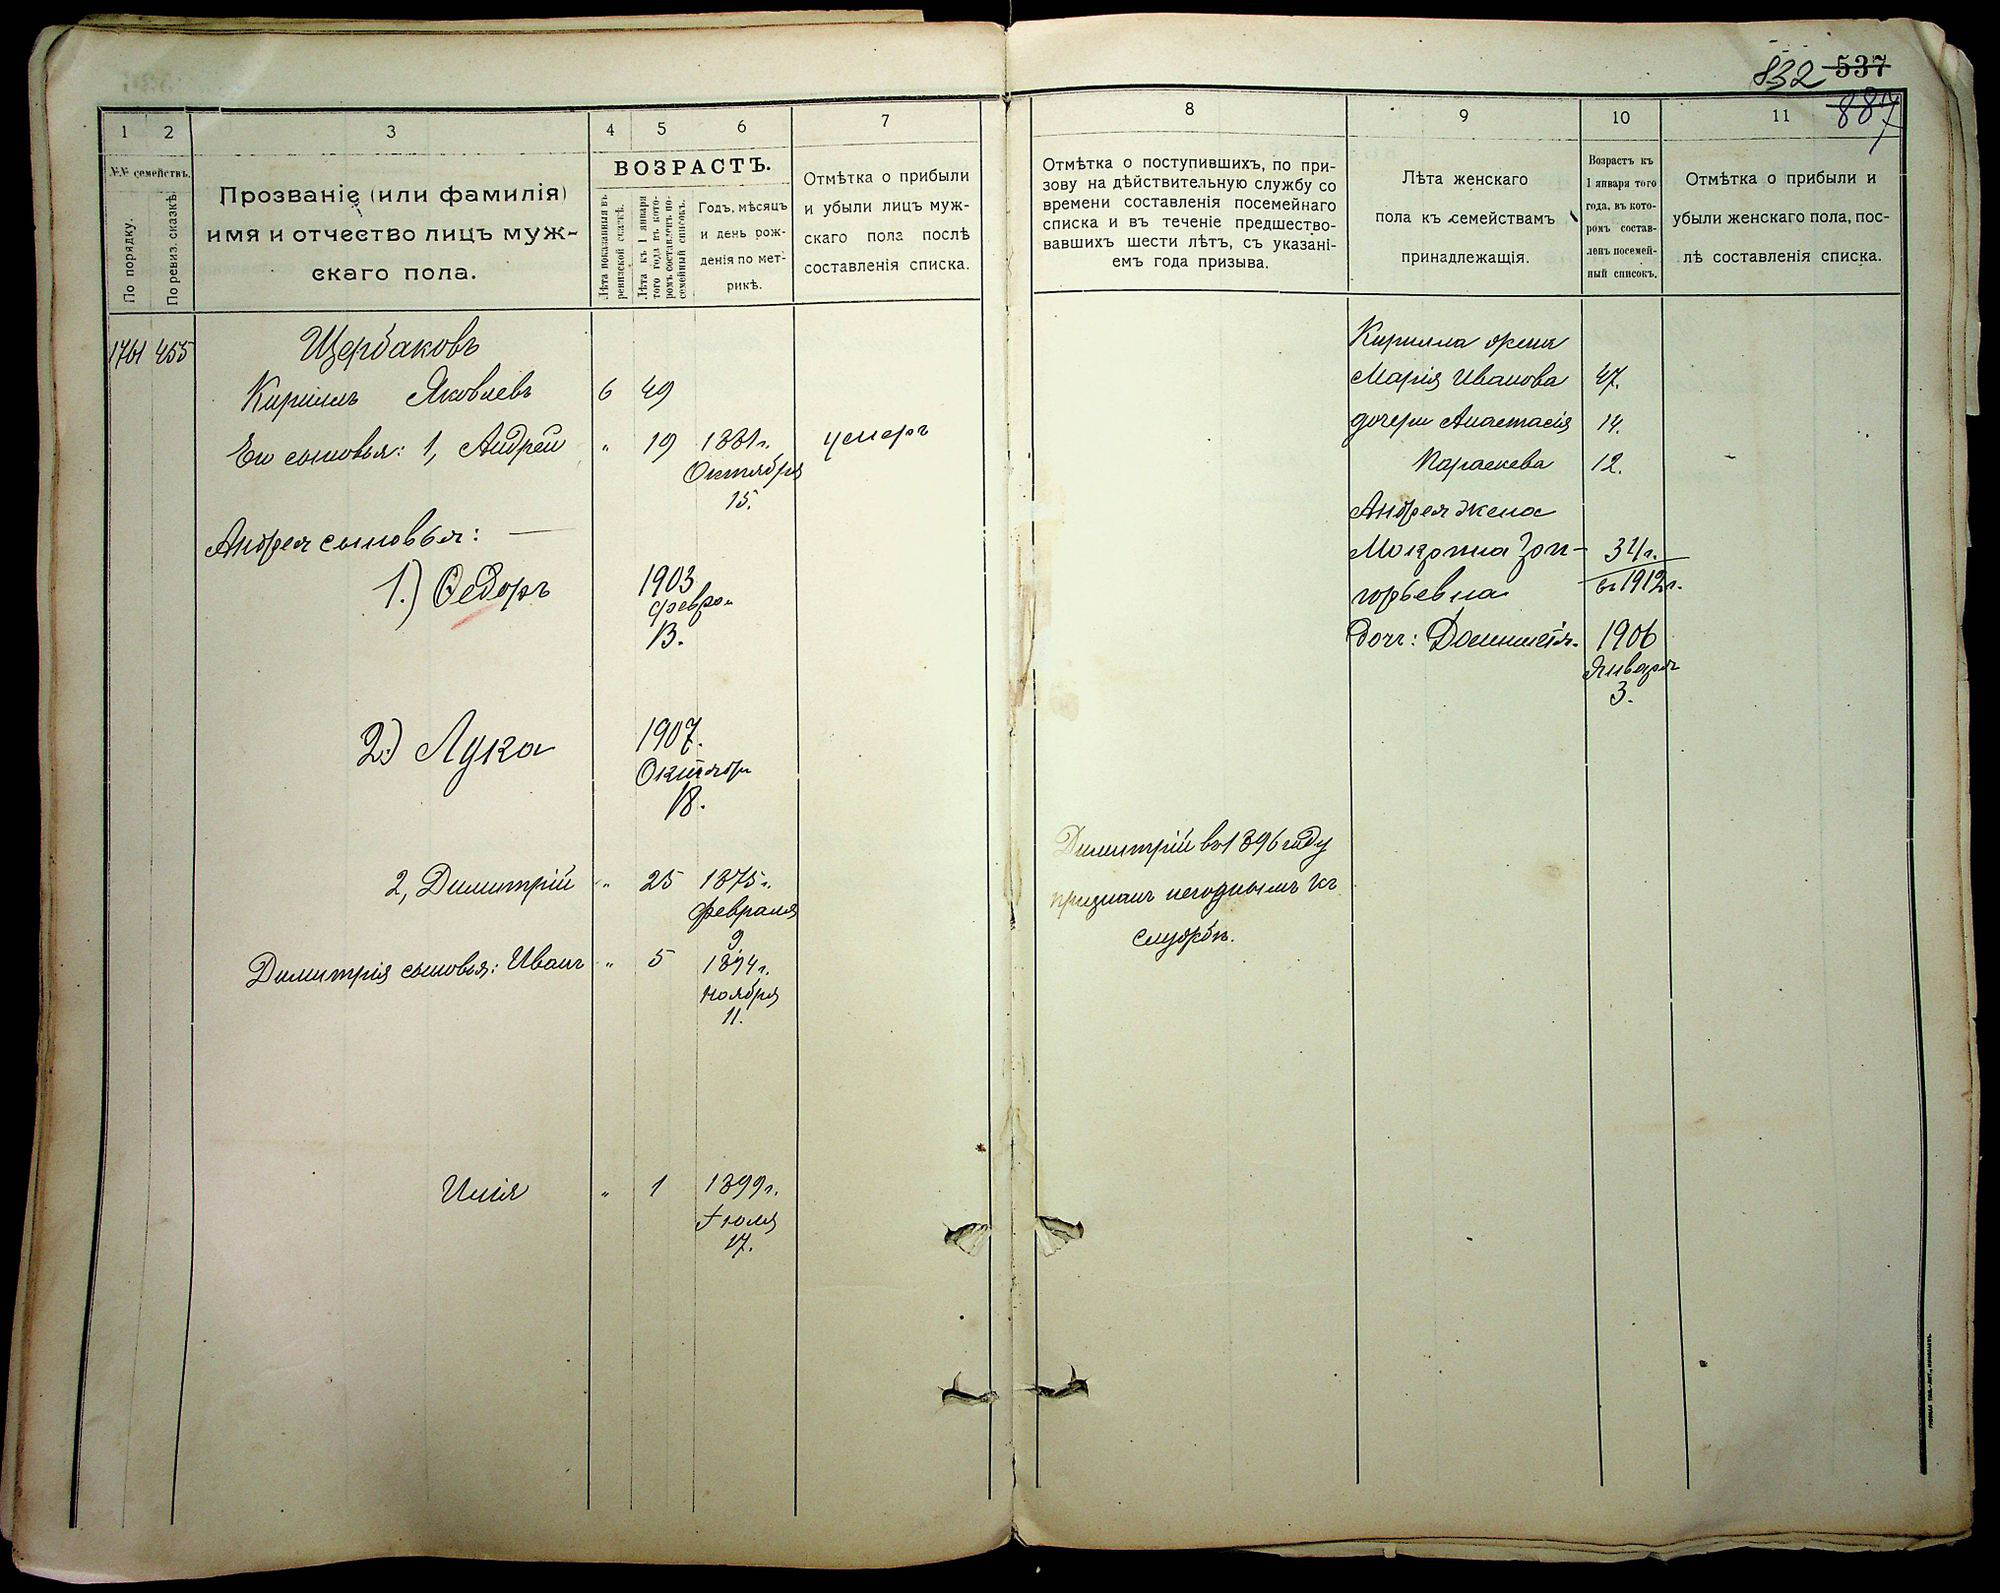 832 537
887
1 2 3 4 5 6 7
№№ семействъ.
По порядку.
По ревиз. сказкѣ
Прозваніе (или фамилія)
имя и отчество лицъ муж-
скаго пола.
ВОЗРАСТЪ.
Лѣта показанныя въ
ревизской сказкѣ.
Лѣта къ 1 января
того года въ кото-
ромъ составленъ по-
семейный списокъ.
Годъ, мѣсяцъ
и день рож-
денія по мет-
рикѣ.
Отмѣтка о прибыли
и убыли лицъ муж-
скаго пола послѣ
составленія списка.
1761 455 Щербаковъ
Кириллъ Яковлевъ 6 49
Его сыновья: 1, Андрей " 19 1881г. умеръ
Октября
15.
Андрея сыновья:
1.) Ѳедоръ 1903
феврал
13.
2) Лука 1907.
Октябр
18.
2, Димитрій " 25 1875г.
февраля
9
Димитрія сыновья: Иванъ " 5 1894г.
Ноября
11.
Илія " 1 1899г.
Іюля
17.
8 9 10 11
Отмѣтка о поступившихъ, по при-
зову на дѣйствительную службу со
времени составленія посемейнаго
списка и въ теченіе предшество-
вавшихъ шести лѣтъ, съ указані-
емъ года призыва.
Лѣта женскаго
пола къ семействамъ
принадлежащія.
Возрастъ къ
1 января того
года, въ кото-
ромъ состав-
ленъ посемей-
ный списокъ.
Отмѣтка о прибыли и
убыли женскаго пола, пос-
лѣ составленія списка.
Кирилла жена
Марія Иванова 47.
дочери Анастасія 14.
Параскева 12.
Андрея жена
31г.
въ 1912г.
дочь: 1906
Января
3.
Димитрій въ 1896 году
признанъ негоднымъ къ
службѣ.